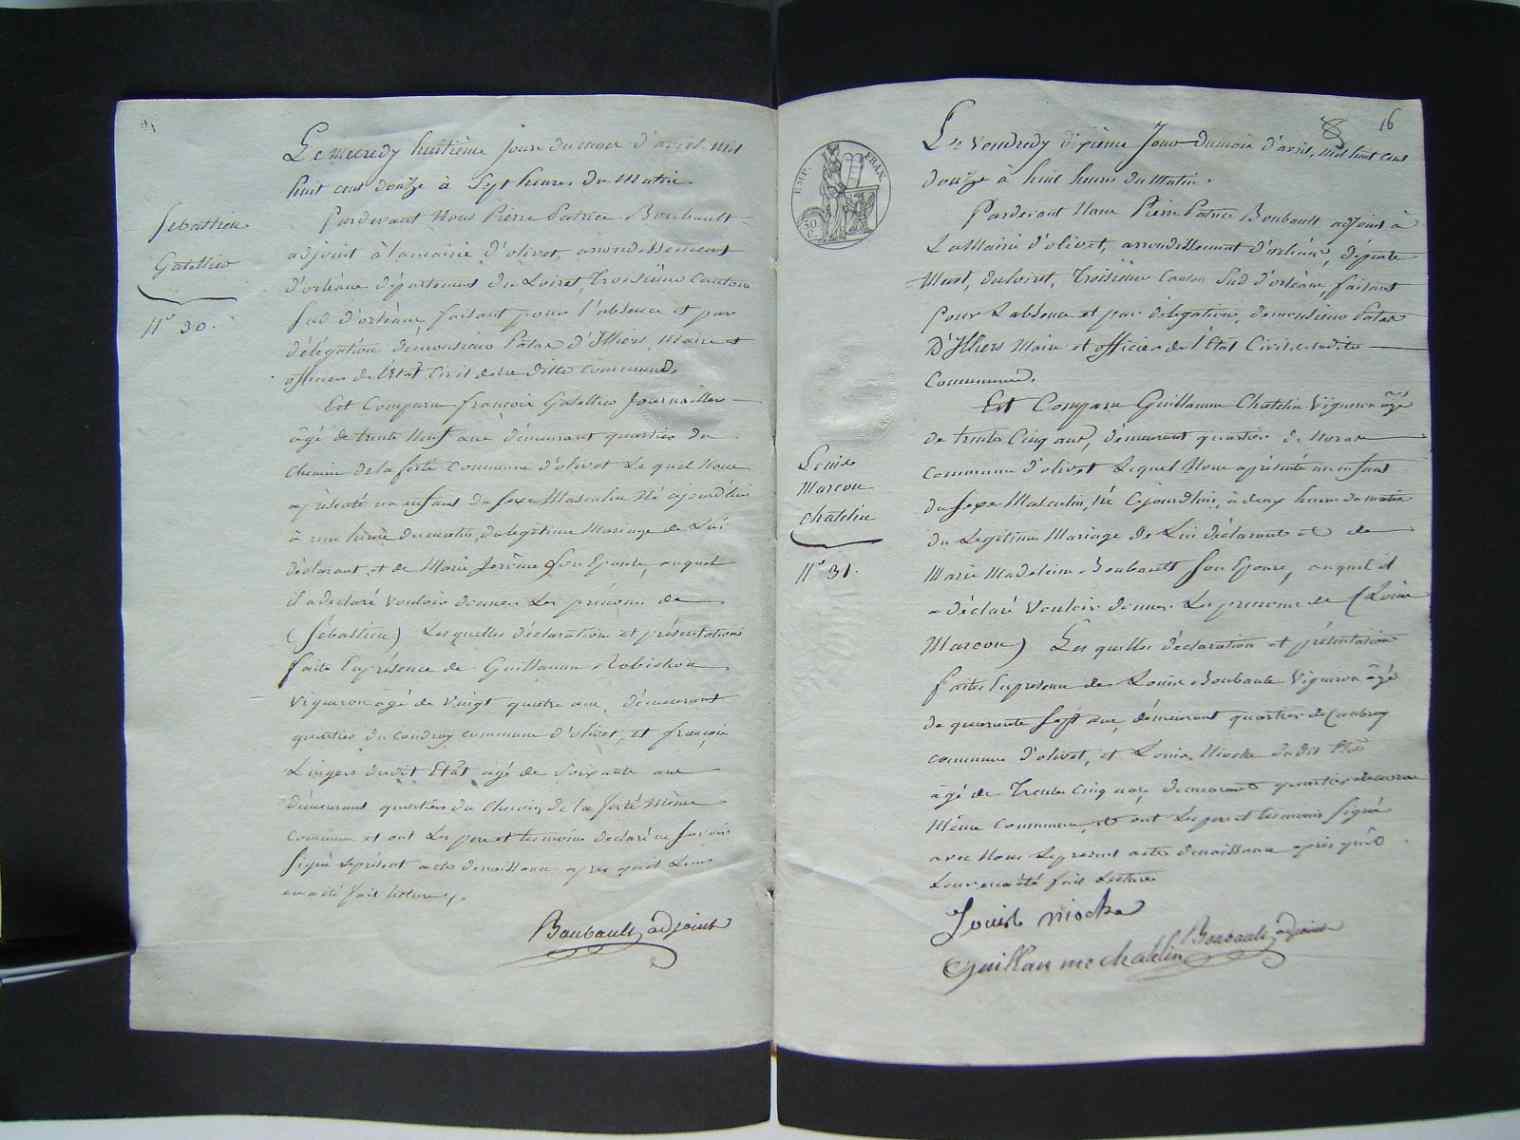 Le mecredy huitième jour du mois d'avril mil
huit cent douze à Sept heures du Matin
Pardevant Nous Pierre Patrice Boubault
adjoint à la mairie d'olivet, arrondissement
d'orléans département du Loiret, Troisième Canton
Sud d'orléans, faisant pour l'absence et par
délégation de monsieur Patas d'Illiers, Maire et
officier de l'état Civil de la ditte Commune.
Est Comparu françois Gatellier Journaillier
âgé de trente Neuf ans demeurant quartier du
Chemin de la ferté Commune d'olivet Le quel Nous
a présenté un enfant du Sexe Masculin Né
à une heure du matin, du légitime Mariage de Lui
déclarant et de Marie Jerôme Son Epouse, auquel
il a déclaré vouloir donner Les prénoms de
(Sébastien) Lesquelles déclaration et présentation
faite En présence de Guillaume Robichon
Vigneron âgé de Vingt quatre ans, demeurant
quartier du Coudray commune d'olivet, et françois
Lingers dudit Etat âgé de Soixante ans
demeurant quartier du Chemin de la ferté Même
Commune et ont Les pere et témoins déclaré ne Savoir
Signé Le présent acte de naissance après qu'il Leur
en a été fait lecture.
Boubault adjoint
Sébastien
Gatellier
N° 30.
16
EMP. FRAN.
50
C.
Le Vendredy dixième Jour du mois d'avril, mil huit cent
douze à huit heures du Matin.
Pardevant Nous Pierre Patrice Boubault adjoint à
La Mairie d'olivet, arrondissement d'orléans, départe
Ment, du loiret, Troisième Canton Sud d'orléans, faisant
pour L'absence et par délégation, de monsieur Patas
D'Illiers Maire et officier de l'Etat Civil de ladite
Commune.
Est Comparu Guillaume Chatelin Vigneron âgé
de trente Cinq ans, demeurant quartier de
Commune d'olivet Lequel Nous a présenté un enfant
du Sexe Masculin, Né Cejourdhui, à deux heures du matin
du Légitime Mariage de Lui déclarant et de
Marie Madeleine Boubault Son Epouse, auquel il
a déclaré Vouloir donner Les prenoms de (Louis
Marcou) Les quelles déclaration et présentation
faites En presence de Louis Boubault Vigneron âgé
de quarante Sept ans, demeurant quartier de Coudray
commune d'olivet, et Louis Nioche dudit Etat
âgé de Trente Cinq ans, demeurant quartier
Même Commune, et ont Les pere et témoins Signé
avec Nous Le présent acte de naissance après qu'il
Leur en a été fait Lecture
Louis nioche
Boubault adjoint
Guillaume chatelin
Louis
Marcou
Chatelin
N° 31.